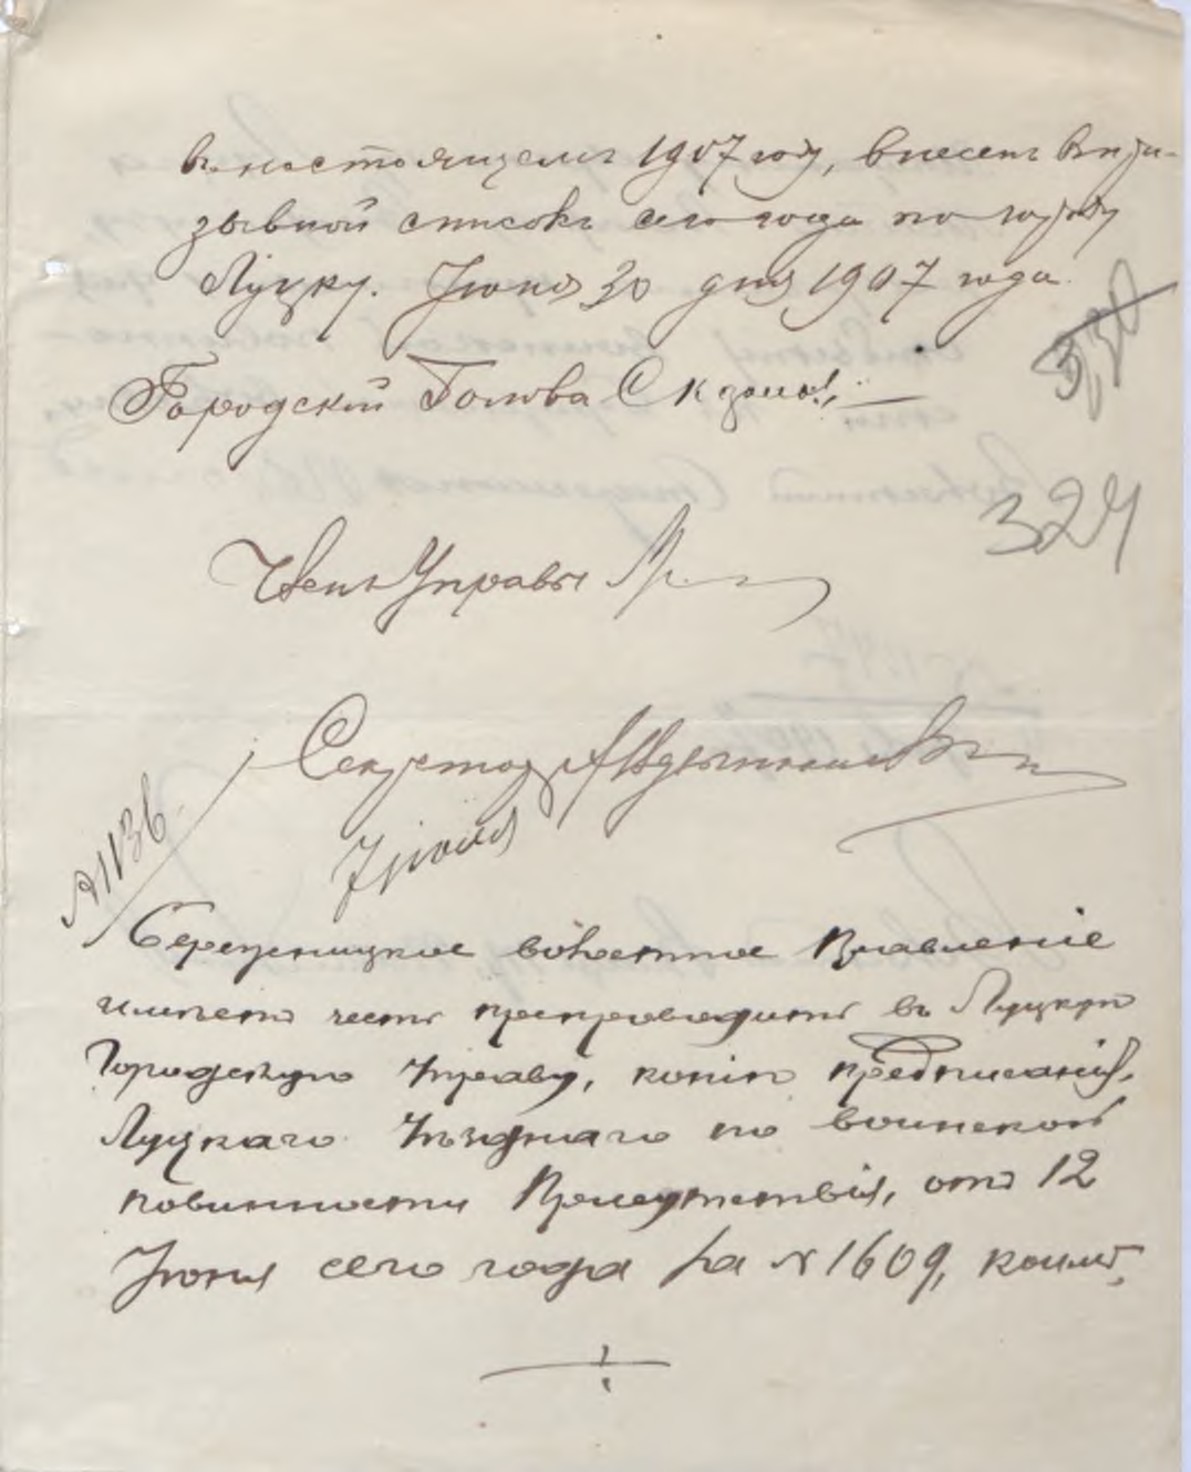 въ настоящемъ 1907 году, внесенъ въ при-
зывной списокъ сего года по городу
Луцку. Іюня 30 дня 1907 года.
3,30
Городской Голова
324
Членъ Управы
Секретарь
№ 1136
Іюня
волостное Правленіе
имѣетъ честь препроводить въ Луцкую
Городскую Управу, копію предписанія,
Луцкаго Уѣзднаго по воинской
повинности Присутствія, отъ 12
Іюня сего года за № 1609, коимъ